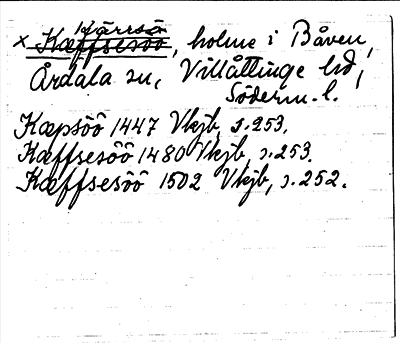 Kärrsö
× Kæffsesöö, holme i Båven,
Årdala sn, Villåttinge hd,
Söderm. l.
Kæpsöö 1447 Vkjb, s. 253.
Kæffsesöö 1480 Vkjb, s. 253.
Kæffsesöö 1502 Vkjb, s. 252.